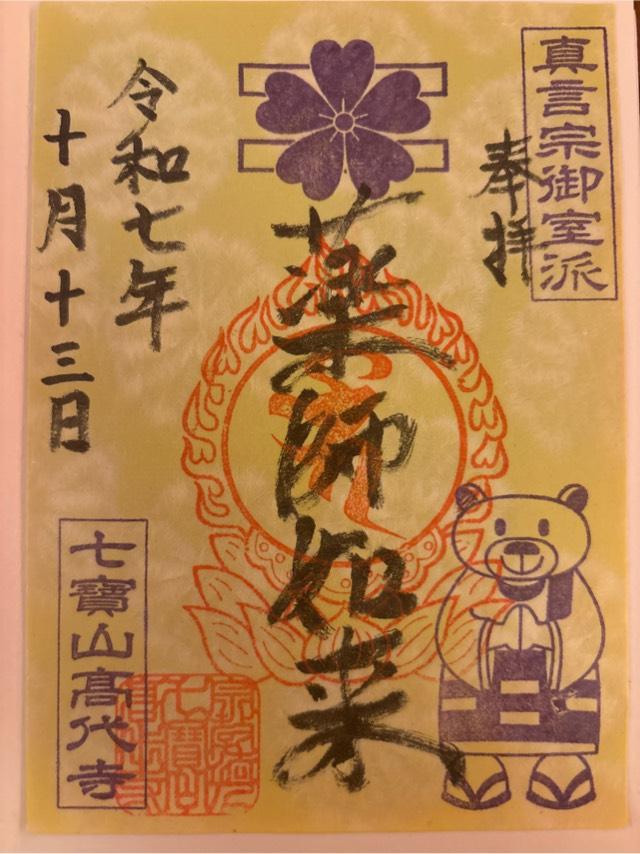 真言宗御室派
奉拝
薬師如来
令和七年
十月十三日
七寶山高代寺